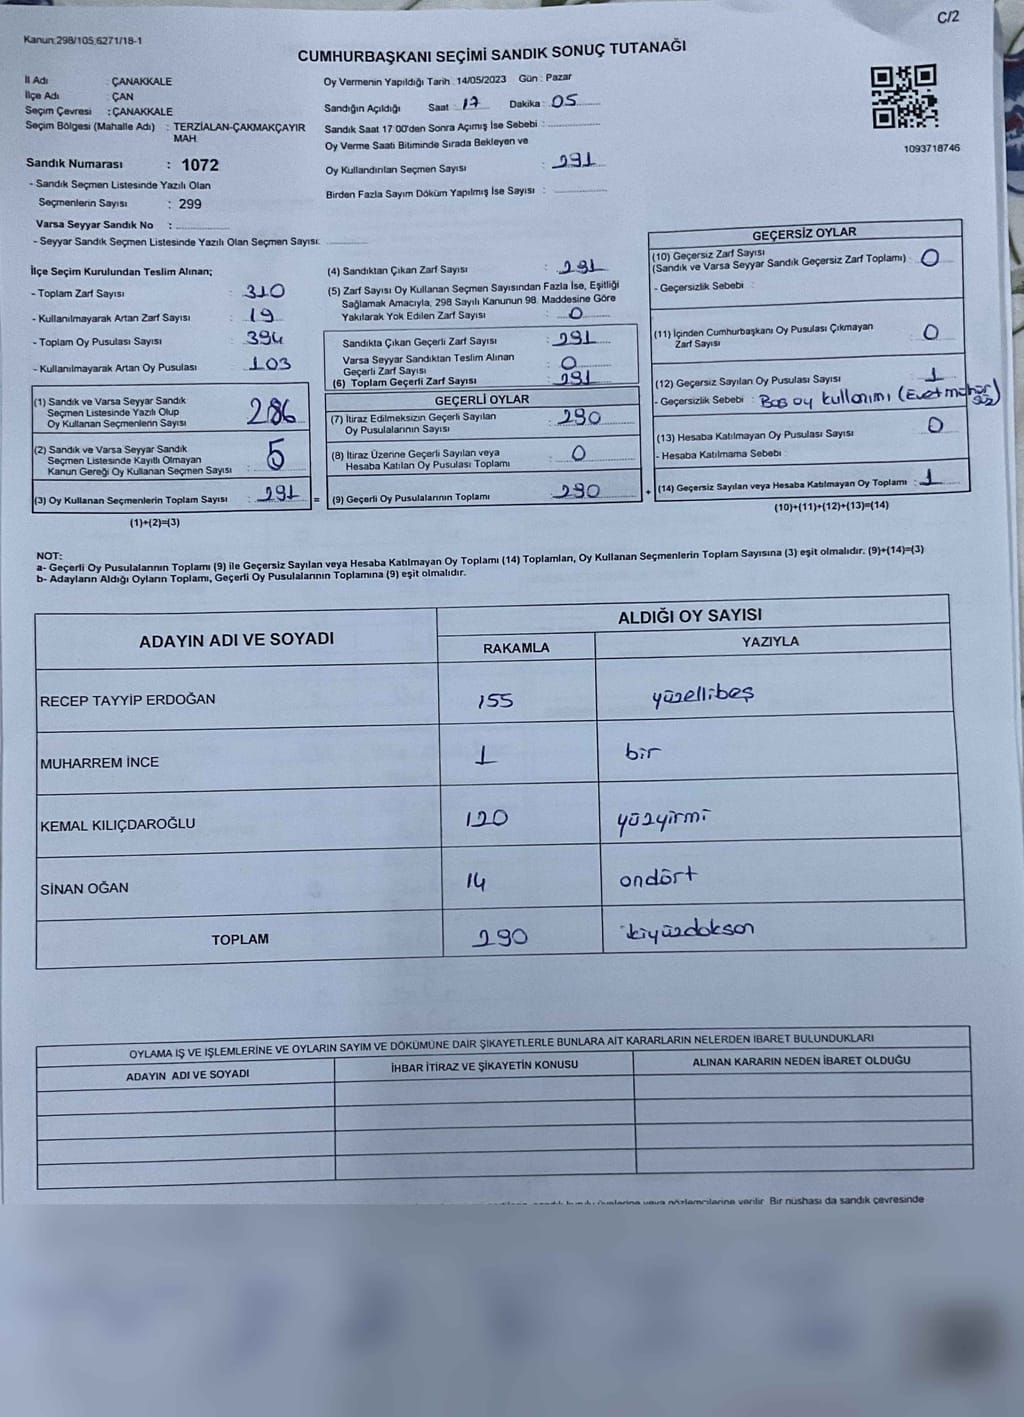 C/2
Kanun:298/105,6271/18-1
CUMHURBAŞKANI SEÇİMİ SANDIK SONUÇ TUTANAĞI
İl Adı : ÇANAKKALE
İlçe Adı : ÇAN
Seçim Çevresi : ÇANAKKALE
Seçim Bölgesi (Mahalle Adı) : TERZİALAN-ÇAKMAKÇAYIR MAH.
Sandık Numarası : 1072
- Sandık Seçmen Listesinde Yazılı Olan
Seçmenlerin Sayısı : 299
Varsa Seyyar Sandık No :
- Seyyar Sandık Seçmen Listesinde Yazılı Olan Seçmen Sayısı:
Oy Vermenin Yapıldığı Tarih : 14/05/2023 Gün : Pazar
Sandığın Açıldığı Saat : 17 Dakika : 05
Sandık Saat 17:00'den Sonra Açımış İse Sebebi :
Oy Verme Saati Bitiminde Sırada Bekleyen ve
Oy Kullandırılan Seçmen Sayısı : 291
Birden Fazla Sayım Döküm Yapılmış İse Sayısı :
1093718746
İlçe Seçim Kurulundan Teslim Alınan;
- Toplam Zarf Sayısı : 310
- Kullanılmayarak Artan Zarf Sayısı : 19
- Toplam Oy Pusulası Sayısı : 394
- Kullanılmayarak Artan Oy Pusulası : 103
(1) Sandık ve Varsa Seyyar Sandık
Seçmen Listesinde Yazılı Olup
Oy Kullanan Seçmenlerin Sayısı : 286
(2) Sandık ve Varsa Seyyar Sandık
Seçmen Listesinde Kayıtlı Olmayan
Kanun Gereği Oy Kullanan Seçmen Sayısı : 5
(3) Oy Kullanan Seçmenlerin Toplam Sayısı : 291 =
(1)+(2)=(3)
(4) Sandıktan Çıkan Zarf Sayısı : 291
(5) Zarf Sayısı Oy Kullanan Seçmen Sayısından Fazla İse, Eşitliği
Sağlamak Amacıyla, 298 Sayılı Kanunun 98. Maddesine Göre
Yakılarak Yok Edilen Zarf Sayısı : 0
Sandıkta Çıkan Geçerli Zarf Sayısı : 291
Varsa Seyyar Sandıktan Teslim Alınan
Geçerli Zarf Sayısı : 0
(6) Toplam Geçerli Zarf Sayısı : 291
GEÇERLİ OYLAR
(7) İtiraz Edilmeksizin Geçerli Sayılan
Oy Pusulalarının Sayısı : 290
(8) İtiraz Üzerine Geçerli Sayılan veya
Hesaba Katılan Oy Pusulası Toplamı : 0
(9) Geçerli Oy Pusulalarının Toplamı : 290 +
GEÇERSİZ OYLAR
(10) Geçersiz Zarf Sayısı
(Sandık ve Varsa Seyyar Sandık Geçersiz Zarf Toplamı) : 0
- Geçersizlik Sebebi :
(11) İçinden Cumhurbaşkanı Oy Pusulası Çıkmayan
Zarf Sayısı : 0
(12) Geçersiz Sayılan Oy Pusulası Sayısı : 1
- Geçersizlik Sebebi : Boş oy kullanımı (Evet mühürsüz)
(13) Hesaba Katılmayan Oy Pusulası Sayısı : 0
- Hesaba Katılmama Sebebi :
(14) Geçersiz Sayılan veya Hesaba Katılmayan Oy Toplamı : 1
(10)+(11)+(12)+(13)=(14)
NOT:
a- Geçerli Oy Pusulalarının Toplamı (9) ile Geçersiz Sayılan veya Hesaba Katılmayan Oy Toplamı (14) Toplamları, Oy Kullanan Seçmenlerin Toplam Sayısına (3) eşit olmalıdır. (9)+(14)=(3)
b- Adayların Aldığı Oyların Toplamı, Geçerli Oy Pusulalarının Toplamına (9) eşit olmalıdır.
ADAYIN ADI VE SOYADI
ALDIĞI OY SAYISI
RAKAMLA YAZIYLA
RECEP TAYYİP ERDOĞAN 155 yüzellibeş
MUHARREM İNCE 1 bir
KEMAL KILIÇDAROĞLU 120 yüzyirmi
SİNAN OĞAN 14 ondört
TOPLAM 290 ikiyüzdoksan
OYLAMA İŞ VE İŞLEMLERİNE VE OYLARIN SAYIM VE DÖKÜMÜNE DAİR ŞİKAYETLERLE BUNLARA AİT KARARLARIN NELERDEN İBARET BULUNDUKLARI
ADAYIN ADI VE SOYADI İHBAR İTİRAZ VE ŞİKAYETİN KONUSU ALINAN KARARIN NEDEN İBARET OLDUĞU
veya gözlemcilerine verilir. Bir nüshası da sandık çevresinde